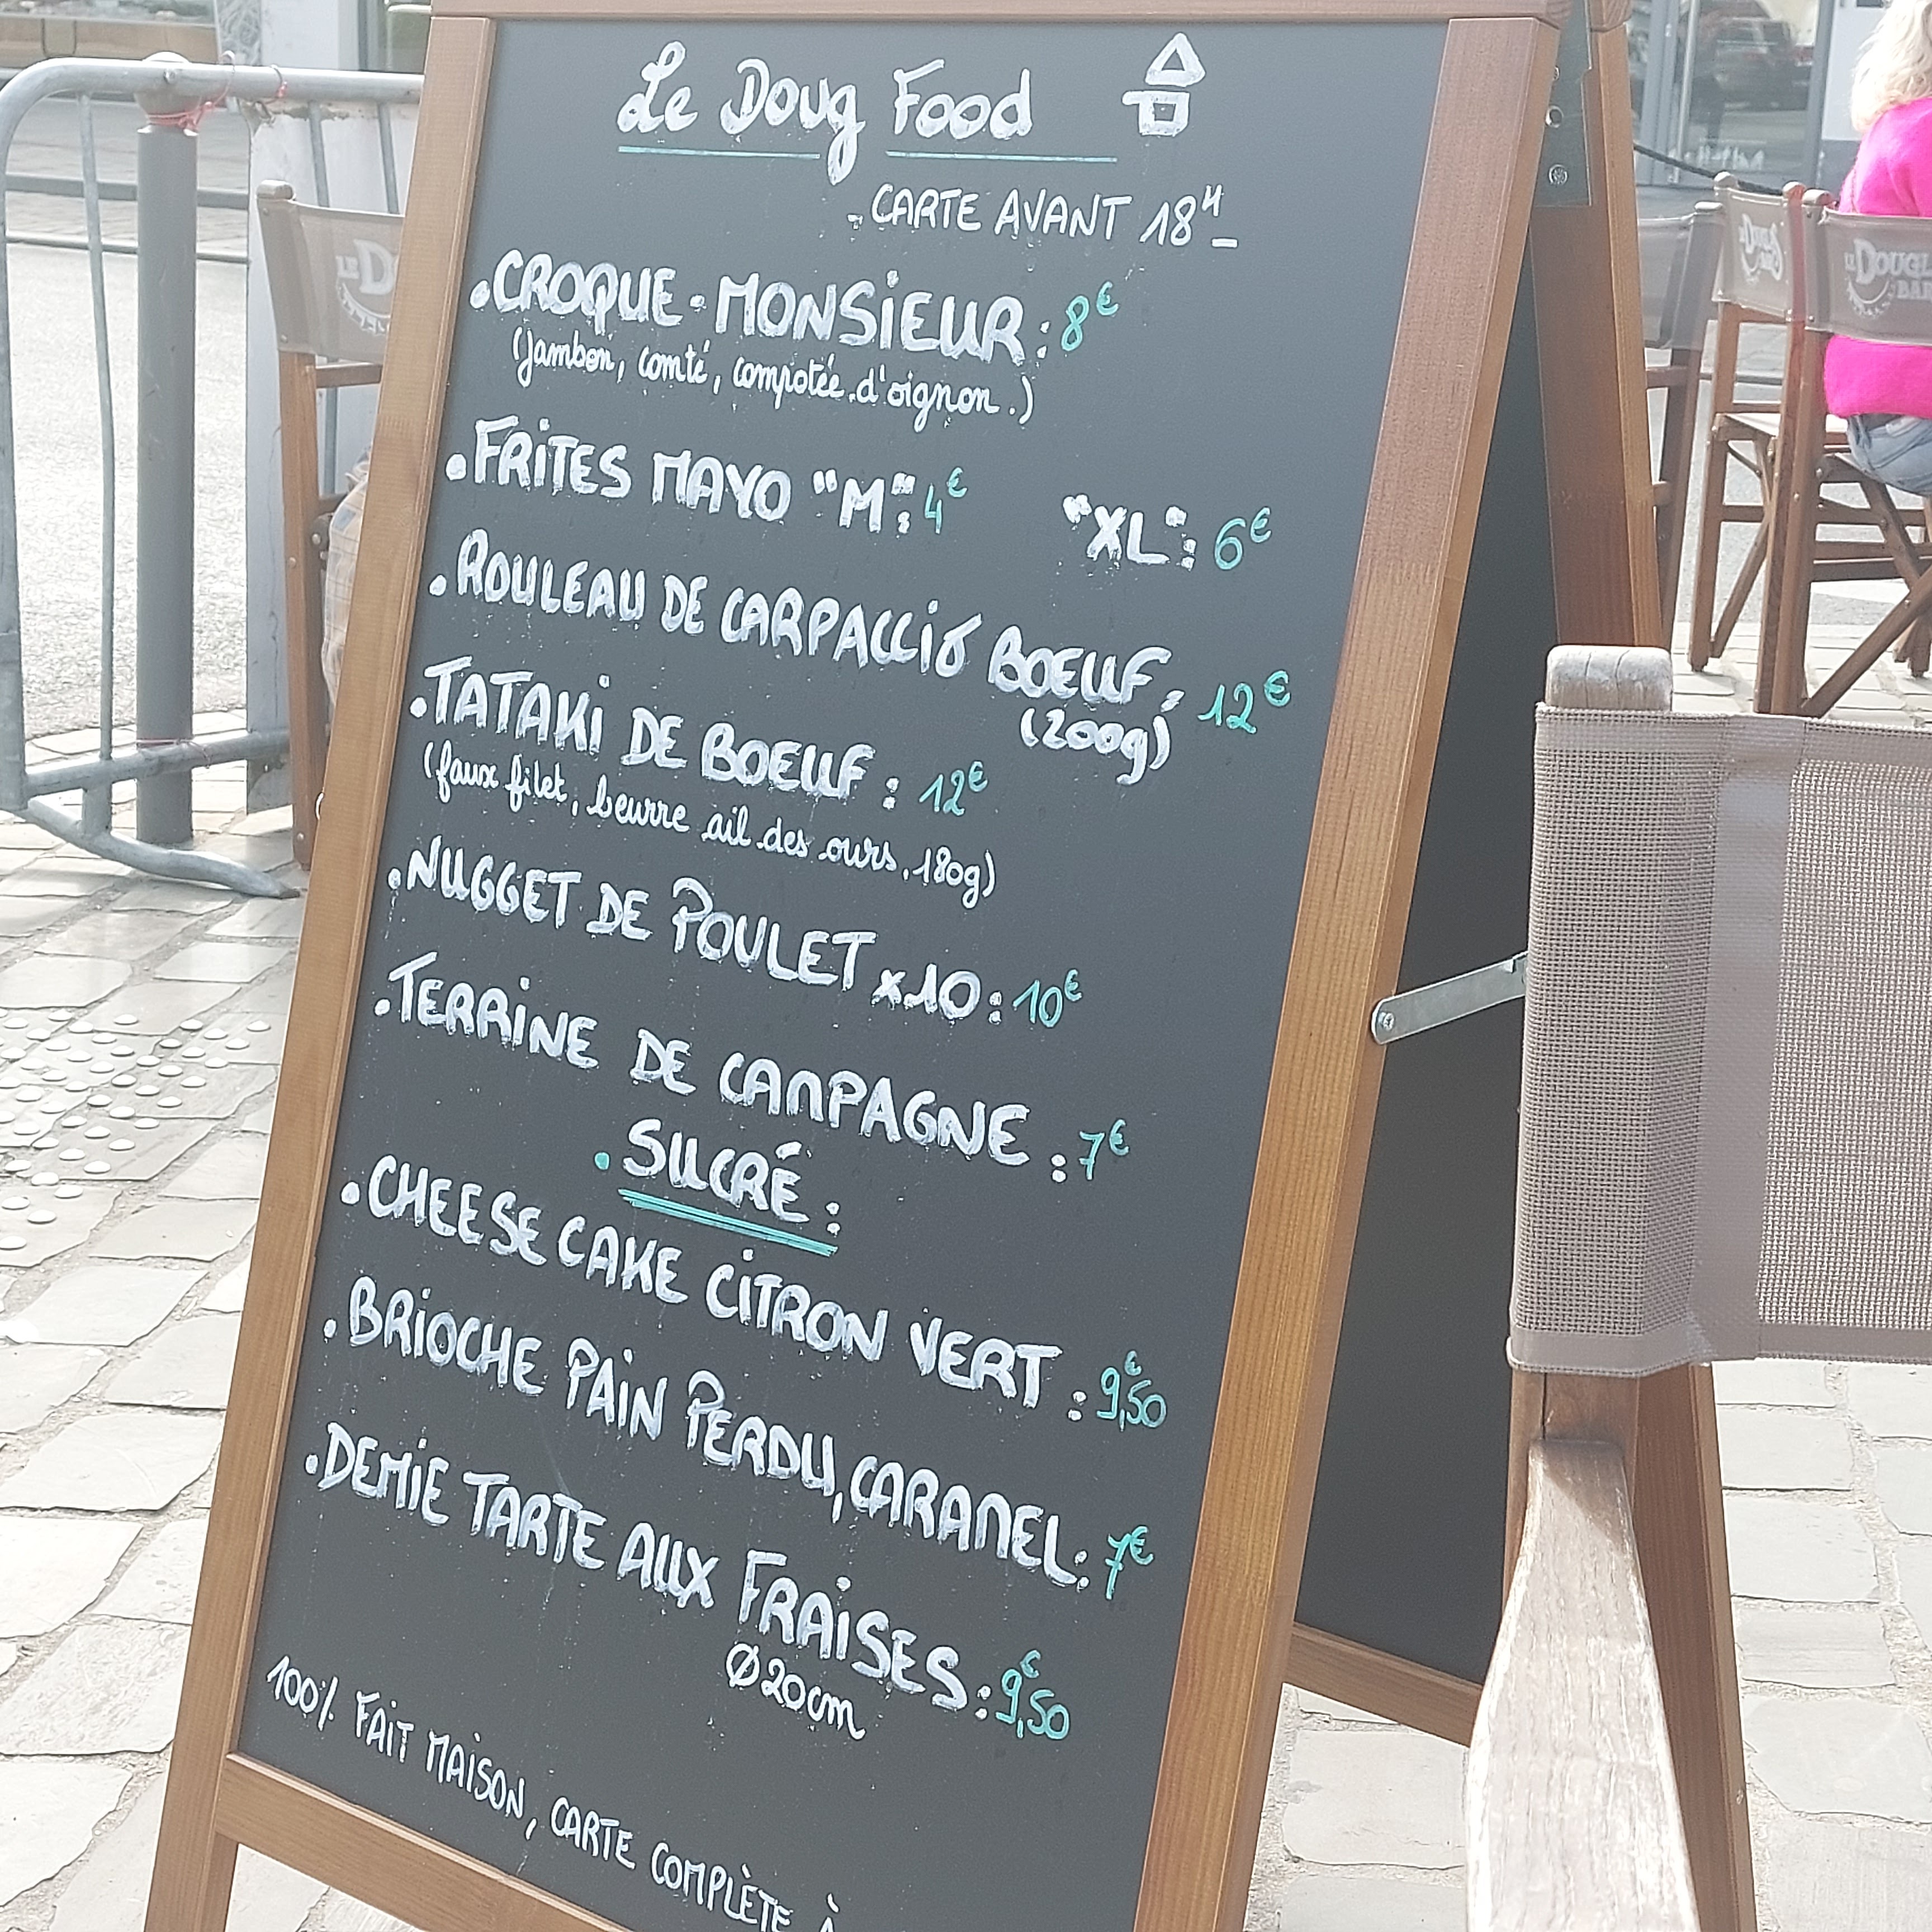 Le Doug Food
- CARTE AVANT 18H -
. CROQUE-MONSIEUR : 8€
(Jambon, comté, compotée d'oignon.)
. FRITES MAYO "M": 4€ "XL": 6€
. ROULEAU DE CARPACCIO BOEUF : 12€
(200g)
. TATAKI DE BOEUF : 12€
(faux filet, beurre ail des ours, 180g)
. NUGGET DE POULET x10 : 10€
. TERRINE DE CAMPAGNE : 7€
. SUCRÉ :
. CHEESE CAKE CITRON VERT : 9,50€
. BRIOCHE PAIN PERDU, CARAMEL : 7€
. DEMIE TARTE AUX FRAISES : 9,50€
Ø20cm
100% FAIT MAISON, CARTE COMPLÈTE À
LE DOUGL
BAR